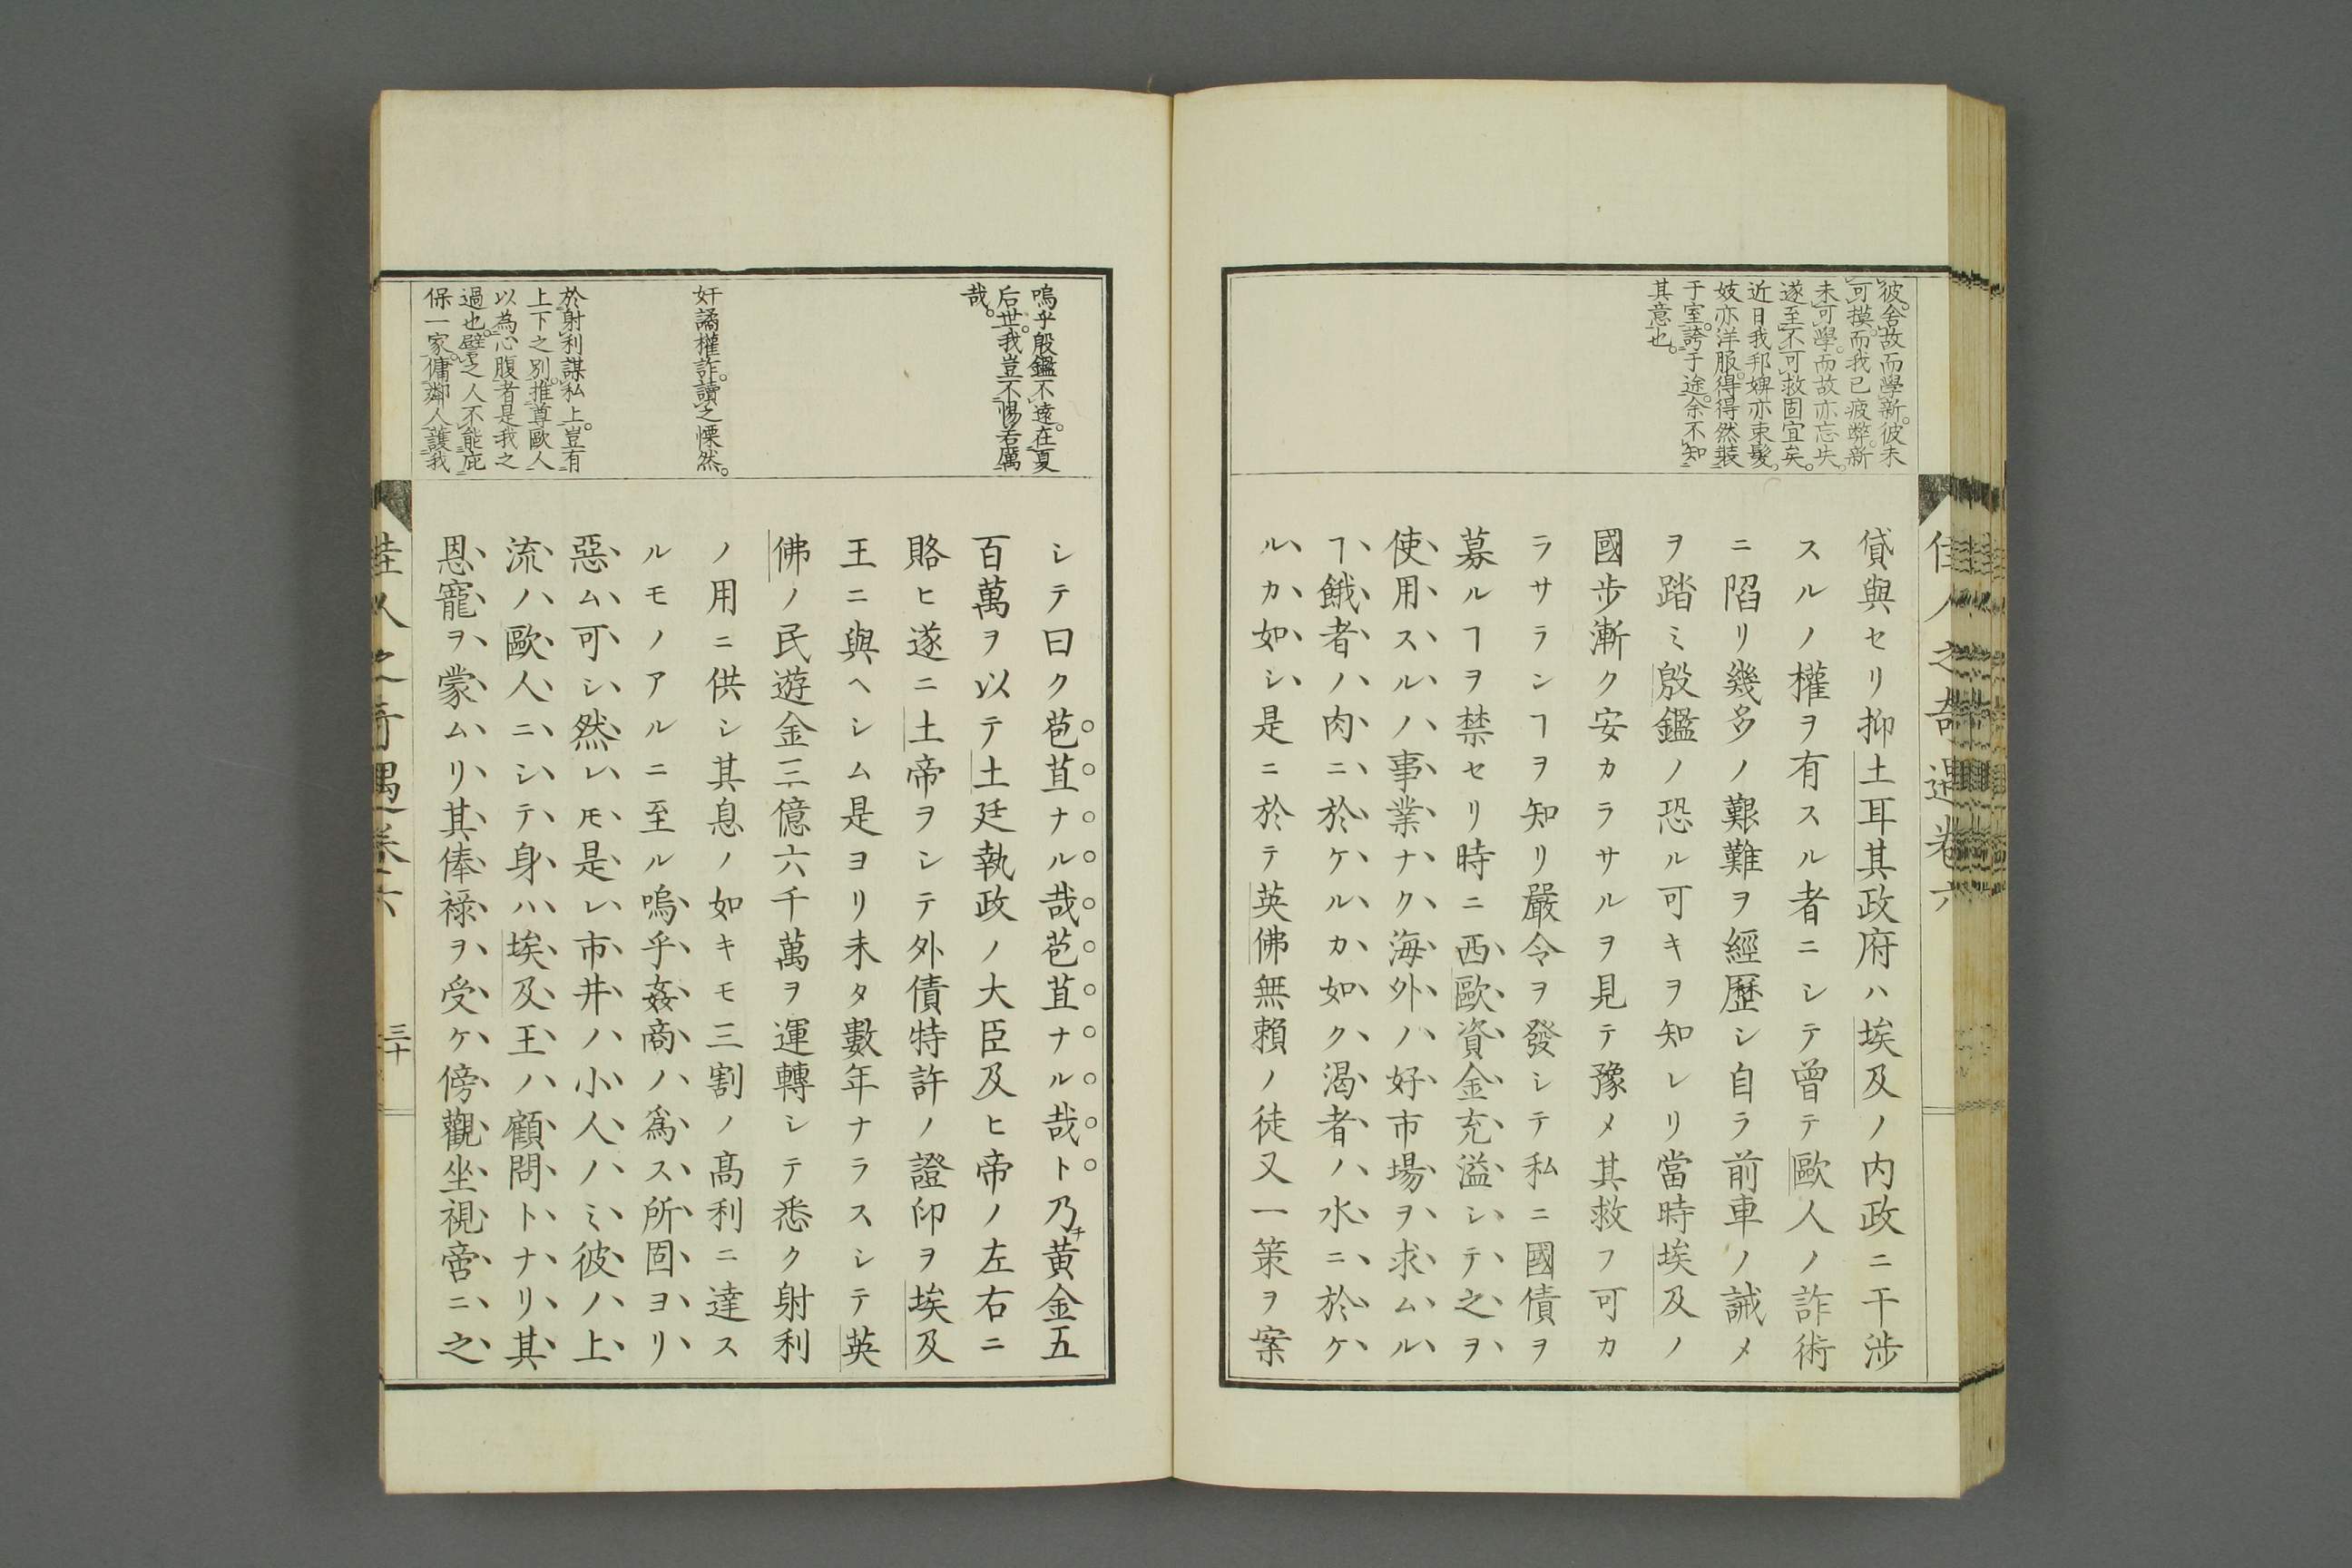 佳人之奇遇卷六
彼舍故而學新彼未
可摸而我已疲弊新
未可學而故亦忘失
遂至不可救固宜矣
近日我邦婢亦束髮
妓亦洋服得得然裝
于室誇于途余不知
其意也
貸與セリ抑土耳其政府ハ埃及ノ内政ニ干渉
スルノ權ヲ有スル者ニシテ曾テ歐人ノ詐術
ニ陷リ幾多ノ艱難ヲ經歷シ自ラ前車ノ誡メ
ヲ踏ミ殷鑑ノ恐ル可キヲ知レリ當時埃及ノ
國步漸ク安カラサルヲ見テ豫メ其救フ可カ
ラサランヿヲ知リ嚴令ヲ發シテ私ニ國債ヲ
募ルヿヲ禁セリ時ニ西歐資金充溢シテ之ヲ
使用スルノ事業ナク海外ノ好市場ヲ求ムル
ヿ餓者ノ肉ニ於ケルカ如ク渴者ノ水ニ於ケ
ルカ如シ是ニ於テ英佛無賴ノ徒又一策ヲ案
嗚乎殷鑑不遠在夏
后世我豈不惕若厲
哉
奸譎權詐讀之慄然
於射利謀私上豈有
上下之別推尊歐人
以為心腹者是我之
過也譬之人不能庇
保一家傭鄰人護我
シテ曰ク苞苴ナル哉苞苴ナル哉ト乃チ黃金五
百萬ヲ以テ土廷執政ノ大臣及ヒ帝ノ左右ニ
賂ヒ遂ニ土帝ヲシテ外債特許ノ證印ヲ埃及
王ニ與ヘシム是ヨリ未タ數年ナラスシテ英
佛ノ民遊金三億六千萬ヲ運轉シテ悉ク射利
ノ用ニ供シ其息ノ如キモ三割ノ高利ニ達ス
ルモノアルニ至ル嗚乎姦商ノ爲ス所固ヨリ
惡ム可シ然レ𪜈是レ市井ノ小人ノミ彼ノ上
流ノ歐人ニシテ身ハ埃及王ノ顧問トナリ其
恩寵ヲ蒙ムリ其俸祿ヲ受ケ傍觀坐視啻ニ之
佳人之奇遇卷六
三十